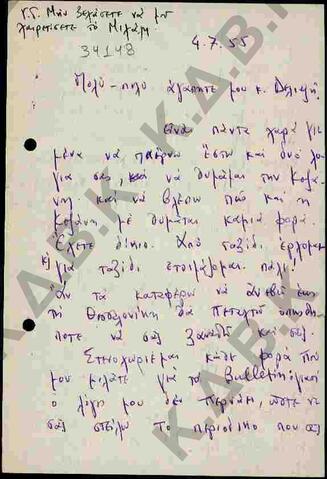 Υ.Γ. Μην ξεχάσετε να μου
χαιρετίσετε το Μιχάλη.
34148
4.7.55
Πολύ-πολύ αγαπητέ μου κ. Δελιαλή
Είναι πάντα χαρά για
μένα να παίρνω έστω και δυό λό
για σας, και να θυμάμαι την Κοζά
νη και να βλέπω πως και η
Κοζάνη με θυμάται καμιά φορά.
Έχετε δίκιο. Από ταξίδι έρχομαι
κι για ταξίδι ετοιμάζομαι πάλι.
Αν τα καταφέρω να ανεβώ έως
τη Θεσσαλονίκη θα πεταχτώ οπωσδή
ποτε να σας ξαναδώ και σας.
Στενοχωριέμαι κάθε φορά που
μου μιλάτε για το Bulletin γιατί
ο λόγος μου δεν περνάει, ώστε να
σας στείλω το περιοδικό που σας